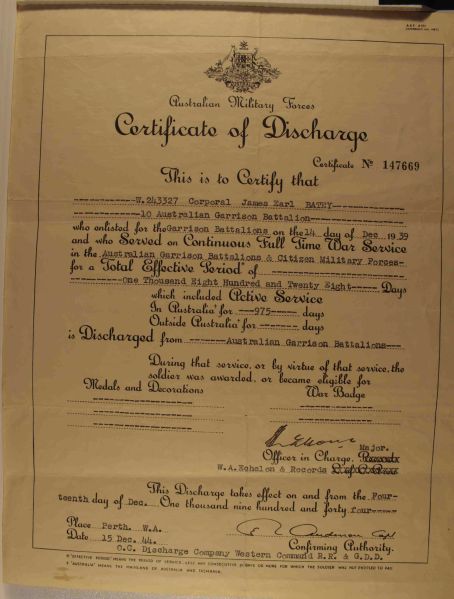 Australian Military Forces
Certificate of Discharge
Certificate No 147669
This is to Certify that
W.243327 Corporal James Earl BATEY
10 Australian Garrison Battalion
who enlisted for the Garrison Battalions on the 14 day of Dec 1939
and who Served on Continuous Full Time War Service
in the Australian Garrison Battalions & Citizen Military Forces
for a Total Effective Period* of
One Thousand Eight Hundred and Twenty Eight Days
which included Active Service
In Australia† for ---975--- days
Outside Australia† for -------- days
is Discharged from Australian Garrison Battalions
During that service, or by virtue of that service, the
soldier was awarded, or became eligible for
Medals and Decorations War Badge
Major.
Officer in Charge, Records
W.A. Echelon & Records
This Discharge takes effect on and from the Four-
teenth day of Dec. One thousand nine hundred and forty four
Place Perth. W.A.
Date 15 Dec. 44.
Anderson Capt
Confirming Authority.
O.C. Discharge Company Western Command R.R. & G.D.D.
* "EFFECTIVE PERIOD" MEANS THE PERIOD OF SERVICE LESS ANY CONSECUTIVE PERIOD OR MORE FOR WHICH THE SOLDIER WAS NOT ENTITLED TO PAY
† "AUSTRALIA" MEANS THE MAINLAND OF AUSTRALIA AND TASMANIA.